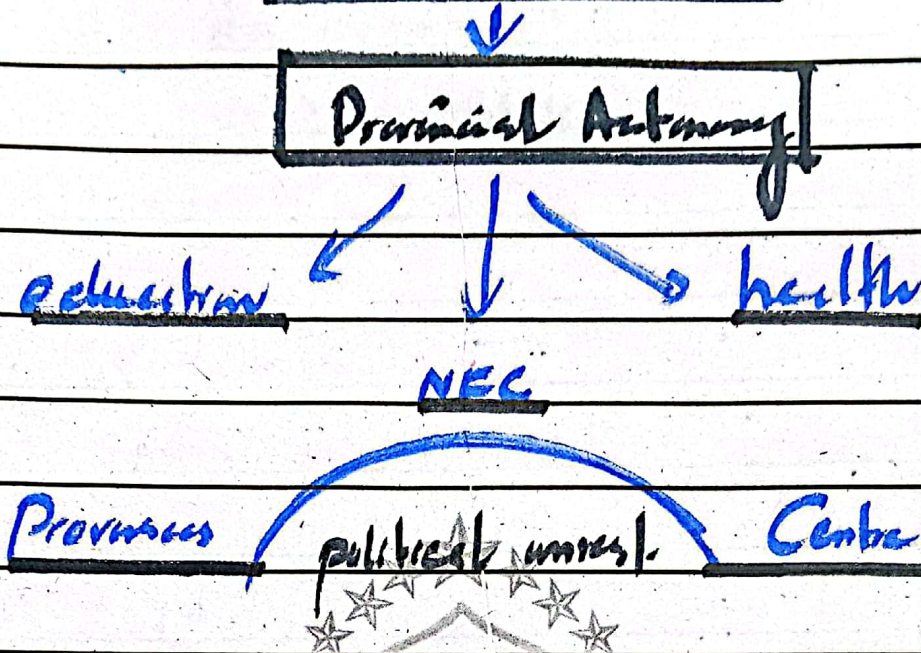 Provincial Autonomy
education health
NEC
Provinces Centre
political unrest.